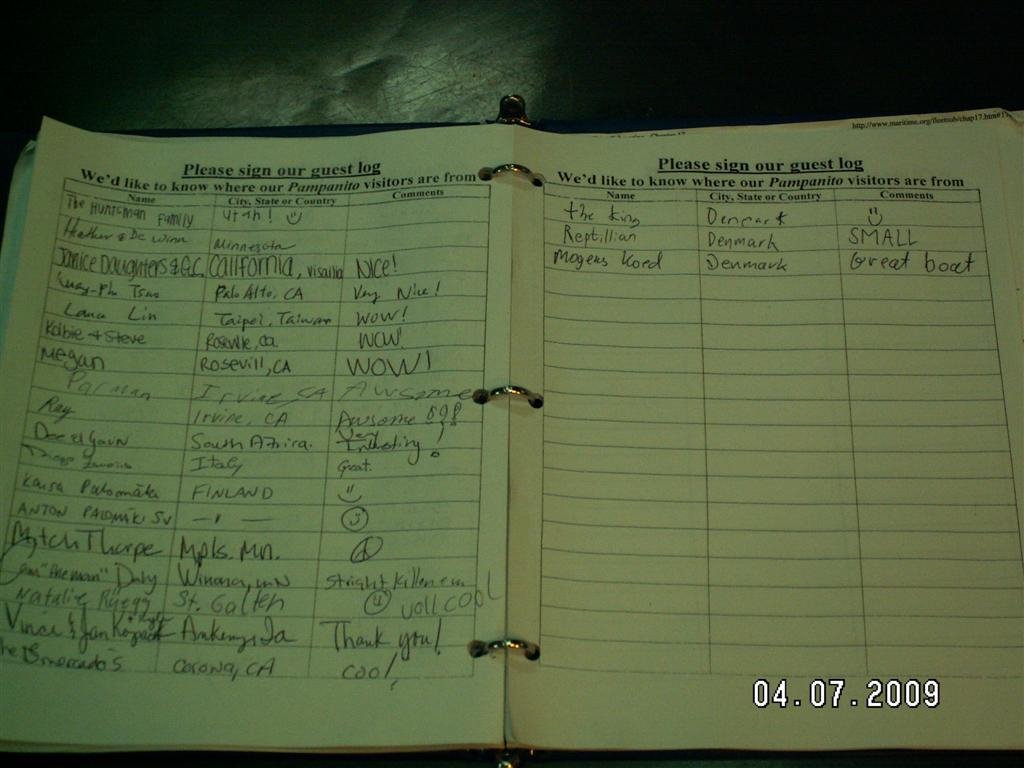 Please sign our guest log
We'd like to know where our Pampanito visitors are from
Name City, State or Country Comments
The Huntsman Family Utah! ☺
Heather & Minnesota
Janice Daughters & G.C. California, visalia NICE!
Palo Alto, CA Very Nice!
Lana Lin Taipei, Taiwan WOW!
Kolbie & Steve Roseville, ca WOW!
Megan Rosevill, CA WOW!
Pacman Irvine, CA Awsome
Ray Irvine, CA Awsome !!!
South Africa. Very Intresting!
Italy Great.
FINLAND ☺
ANTON - " - ☺
Mitch Thorpe Mpls. Mn. ☮
"the man" Winona, mn stright killen em
Natalie Rüegg St. Gallen ☺ voll cool
Vince & Jan Ankeny, Ia Thank you!
Corona, CA cool,
http://www.maritime.org/fleetsub/chap17.htm#17
Please sign our guest log
We'd like to know where our Pampanito visitors are from
Name City, State or Country Comments
the King Denmark ☺
Reptillian Denmark SMALL
Mogens Koed Denmark Great boat
04.07.2009